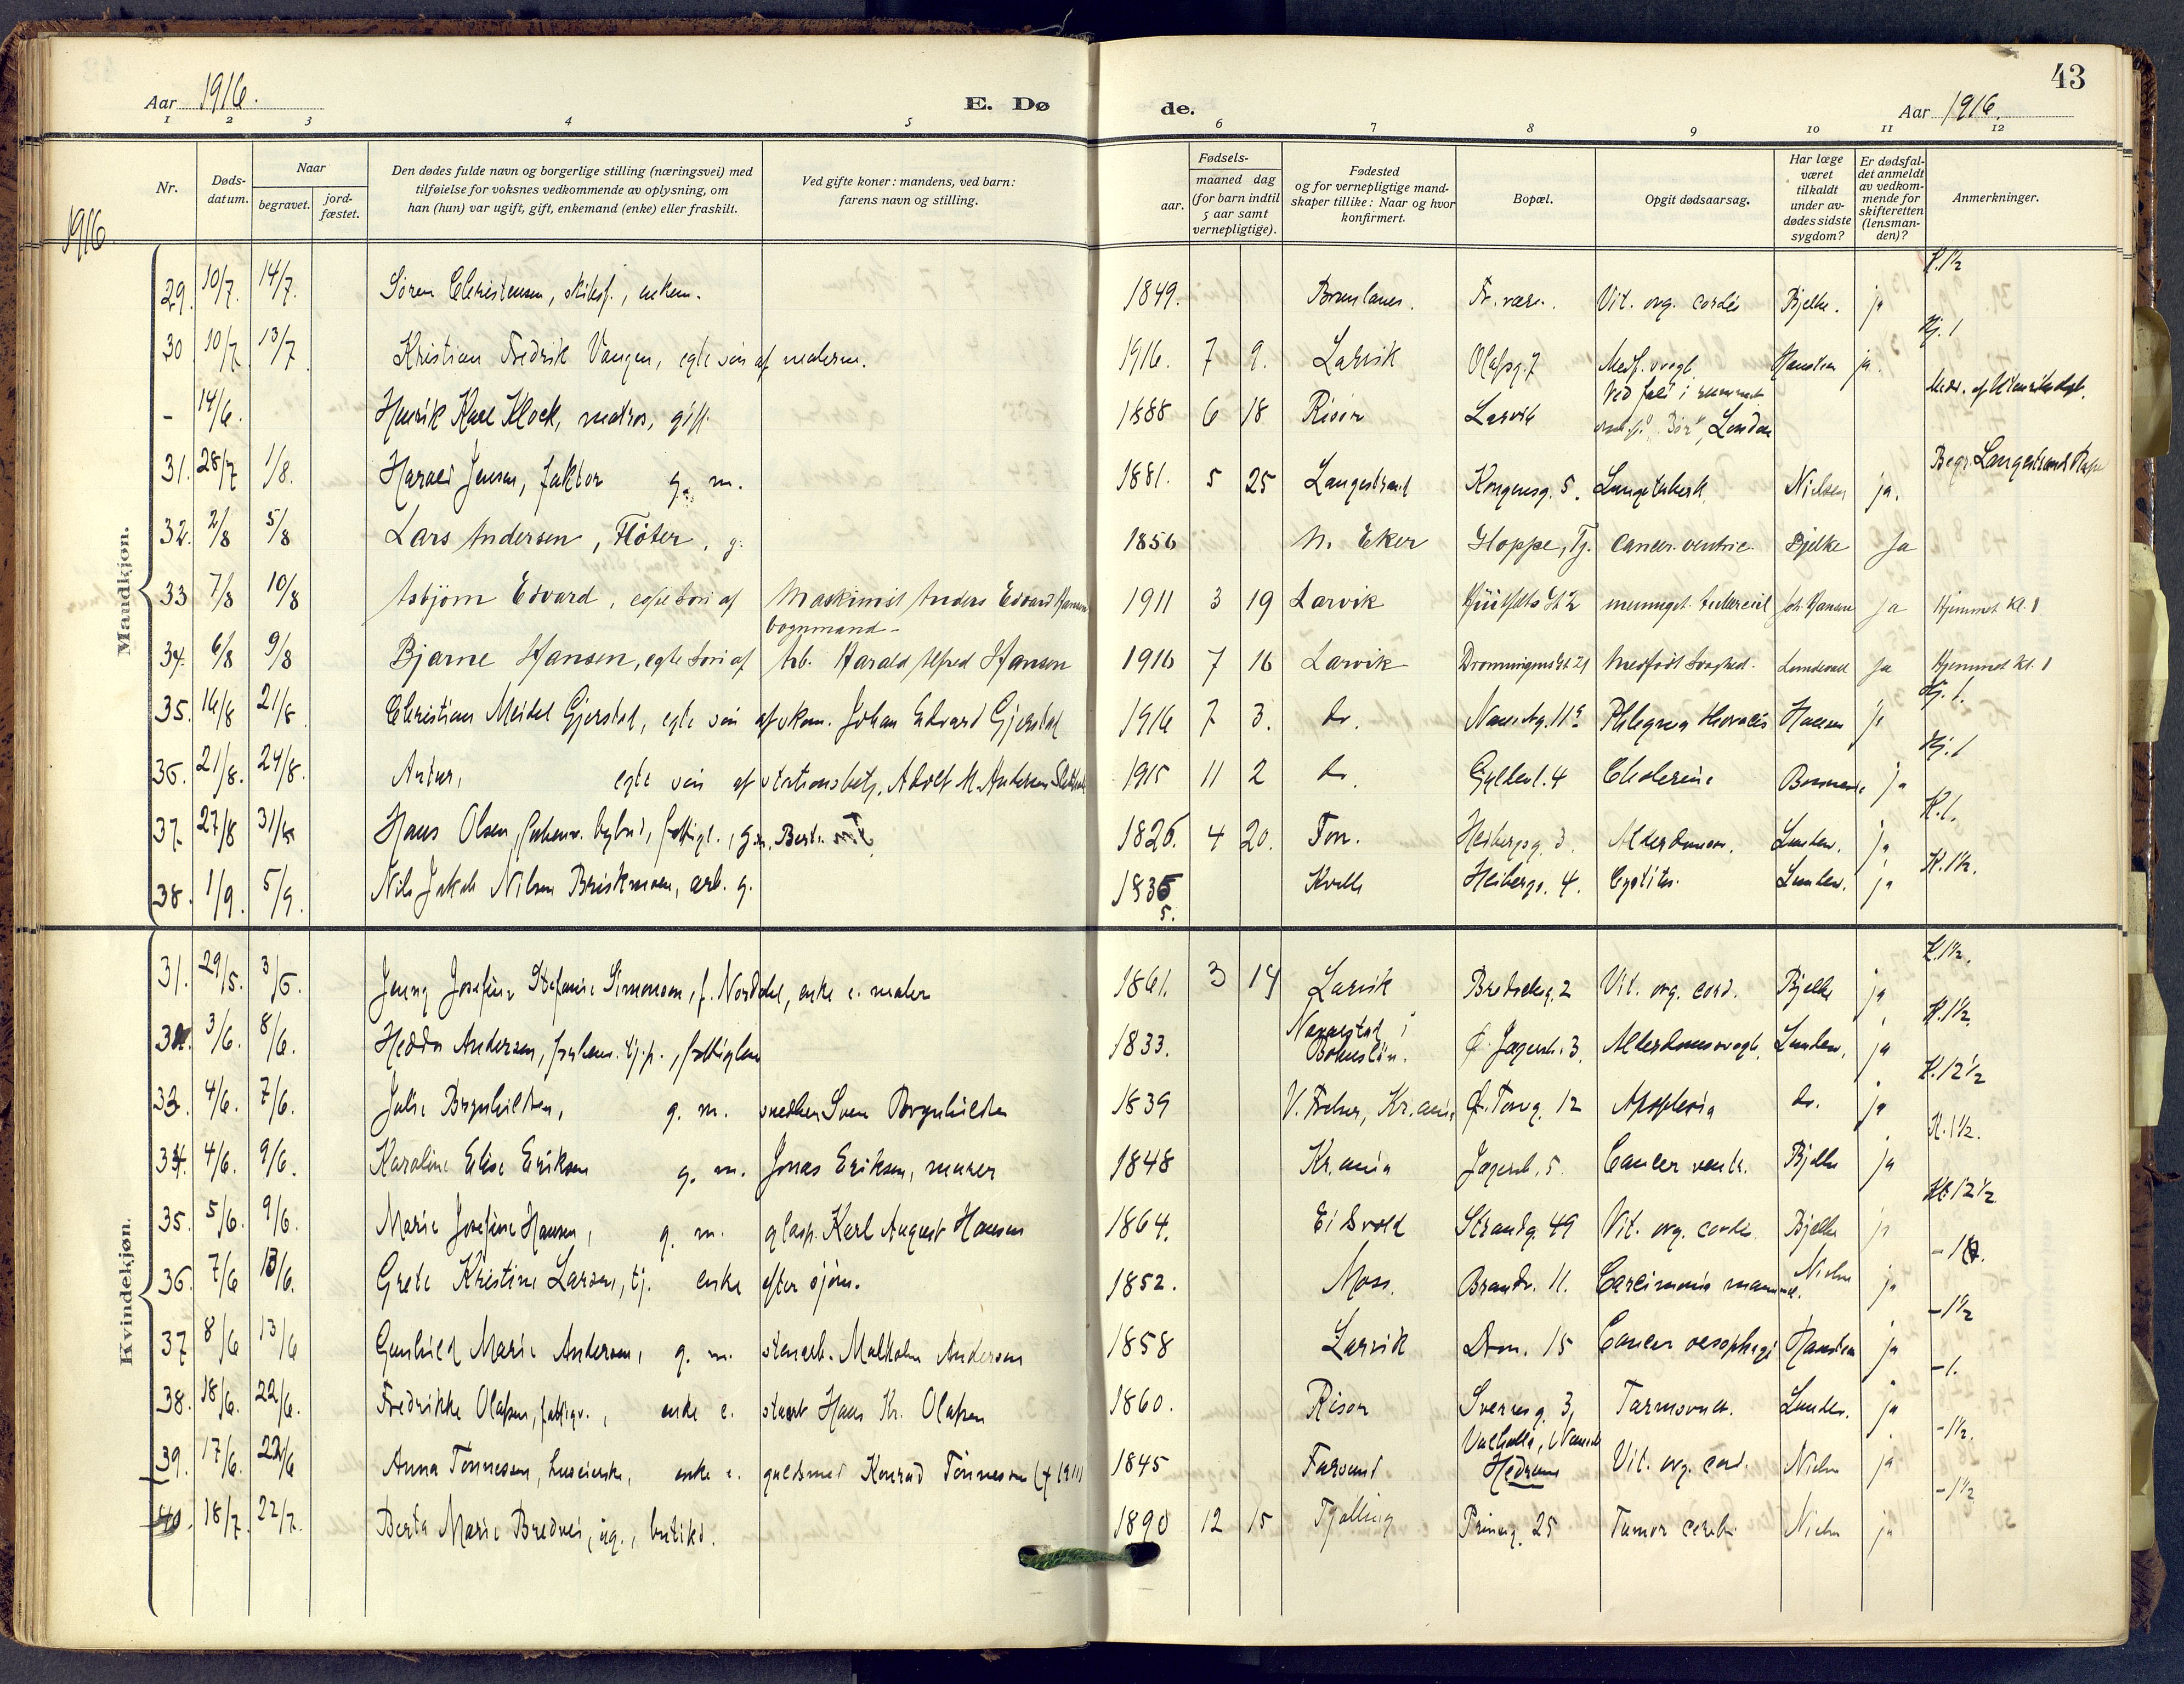 43
Aar 1916.
E. Dø
de.
Aar 1916.
1 2 3 4 5 6 7 8 9 10 11 12
Nr.
Døds-
datum.
Naar
begravet.
jord-
fæstet.
Den dødes fulde navn og borgerlige stilling (næringsvei) med
tilføielse for voksnes vedkommende av oplysning, om
han (hun) var ugift, gift, enkemand (enke) eller fraskilt.
Ved gifte koner: mandens, ved barn:
farens navn og stilling.
Fødsels-
aar.
maaned dag
(for barn indtil
5 aar samt
vernepligtige).
Fødested
og for vernepligtige mand-
skaper tillike: Naar og hvor
konfirmert.
Bopæl.
Opgit dødsaarsag.
Har læge
været
tilkaldt
under av-
dødes sidste
sygdom?
Er dødsfal-
det anmeldt
av vedkom-
mende for
skifteretten
(lensman-
den)?
Anmerkninger.
1916
Mandkjøn.
29. 10/7. 14/7. Søren Christensen, skibsf., enkem. 1849. Brunlanes. Fr.værn. Vit. org. cordis Bjelke. ja K. 1½
30 10/7 13/7 Kristian Fredrik Vangen, egte søn af maleren. 1916. 7 9. Larvik Olafsg. 7 Medf. svagh. Hansteen ja. Hj. 1
- 14/6. Henrik Karl Klock, matros, gift 1888 6 18 Risør Larvik Ved fald i London
31. 28/7 1/8. Harald Jensen, faktor g. m. 1881. 5 25 Langestrand Kongensg. 5. Lungetuberk. Nielsen ja. Begr. Langestrand
32. 2/8 5/8 Lars Andersen, Fløter, g. 1856 N. Eker Hoppe, Tj. Cancer ventric. Bjelke Ja
33 7/8 10/8 Asbjørn Edvard, egte søn af Maskinist Anders Edvard Hansen 1911 3 19 Larvik meningit. tubercul Joh. Hansen ja Hjemmet Kl. 1
34. 6/8 9/8 Bjarne Hansen, egte søn af bognmand- Arb. Harald Alfred Hansen 1916 7 16 Larvik Dronningens Gt. 21 Medfødt svaghed. Lundevall Ja Hjemmet Kl. 1
35. 16/8 21/8 Christian Meidel Gjerstad, egte søn af skom. Johan Edvard Gjerstad 1916 7 3. do. Nansetg. 119 Phlegmon thoracis Hansen ja Hj. 1.
36. 21/8. 24/8. Artur, egte søn af stationsbetj. Adolf M. Andersen 1915 11 2 do. Gyldenl. 4 Cholerine ja Hj. 1
37. 27/8 31/8 Hans Olsen, forhenv. bybud, fattigl., g.m. Berte 1826. 4 20. Fon. Heibergsg. 3. Alderdomssv. Lundev. ja K. 1.
38. 1/9. 5/9. Nils Jakob Nilsen Briskmoen, arb. g. 1835 5. Kvelle Heibergs. 4. Cystitis. Lundev. ja K. 1½.
Kvindekjøn.
31. 29/5. 3/6. Jenny Josefine Stefanie Simonsen, f. Norddal, enke e. maler 1861. 3 14 Larvik Bredocksg. 2 Vit. org. cord. Bjelke ja K. 1½.
32. 3/6. 8/6. Hedda Andersen, forhenv. tj.p., fattiglem 1833. Naverstad i Bohuslän. Ø. Jegersb. 3. Alderdomssvagh. Lundev. ja K. 1½.
33. 4/6. 7/6. Julie Brynhildsen, g. m. snedker Sven Brynhildsen 1839 V. Frelser, Kr.ania Ø. Torvg. 12 Apoplexia do. ja K. 12½
34. 4/6. 9/6. Karoline Elise Eriksen g. m. Jonas Eriksen, murer 1848 Kr.ania Jegersb. 5. Cancer ventr. Bjelke ja K. 1½.
35. 5/6. 9/6. Marie Josefine Hansen, g. m. glasp. Karl August Hansen 1864. Eidsvold Strandg. 49 Vit. org. cordis Bjelke ja Kl. 12½
36. 7/6 13/6. Grete Kristine Larsen, tj. enke efter sjøm. 1852. Moss. Brandv. 11. Carcimonia mammae. Nielsen ja
37 8/6 13/6 Gunhild Marie Andersen, g. m. stenarb. Malkolm Andersen 1858 Larvik Dron. 15 Cancer oesophagi Hansteen ja - 1½
38. 18/6. 22/6. Fredrikke Olafsen, fattigv., enke e. stuert Hans Kr. Olafsen 1860. Risør Sverresg. 3, Tarmsvulst. Lundev. ja - 1.
39. 17/6. 22/6 Anna Tønnesen, huseierske, enke e. guldsmed Konrad Tønnessen († 1911) 1845 Farsund Valhalla, Nanset Hedrum Vit. org. cord. Nielsen ja - 1½.
40. 18/7. 22/7. Berta Marie Bredvei, ug., butiksd. 1890 12 15 Tjølling Prinsg. 25 Tumor cerebri Nielsen ja - 1½